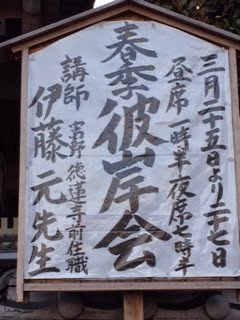 三月二十五日より二十七日
昼席一時半夜席七時半
春季彼岸会
講師
徳蓮寺前住職
伊藤元先生